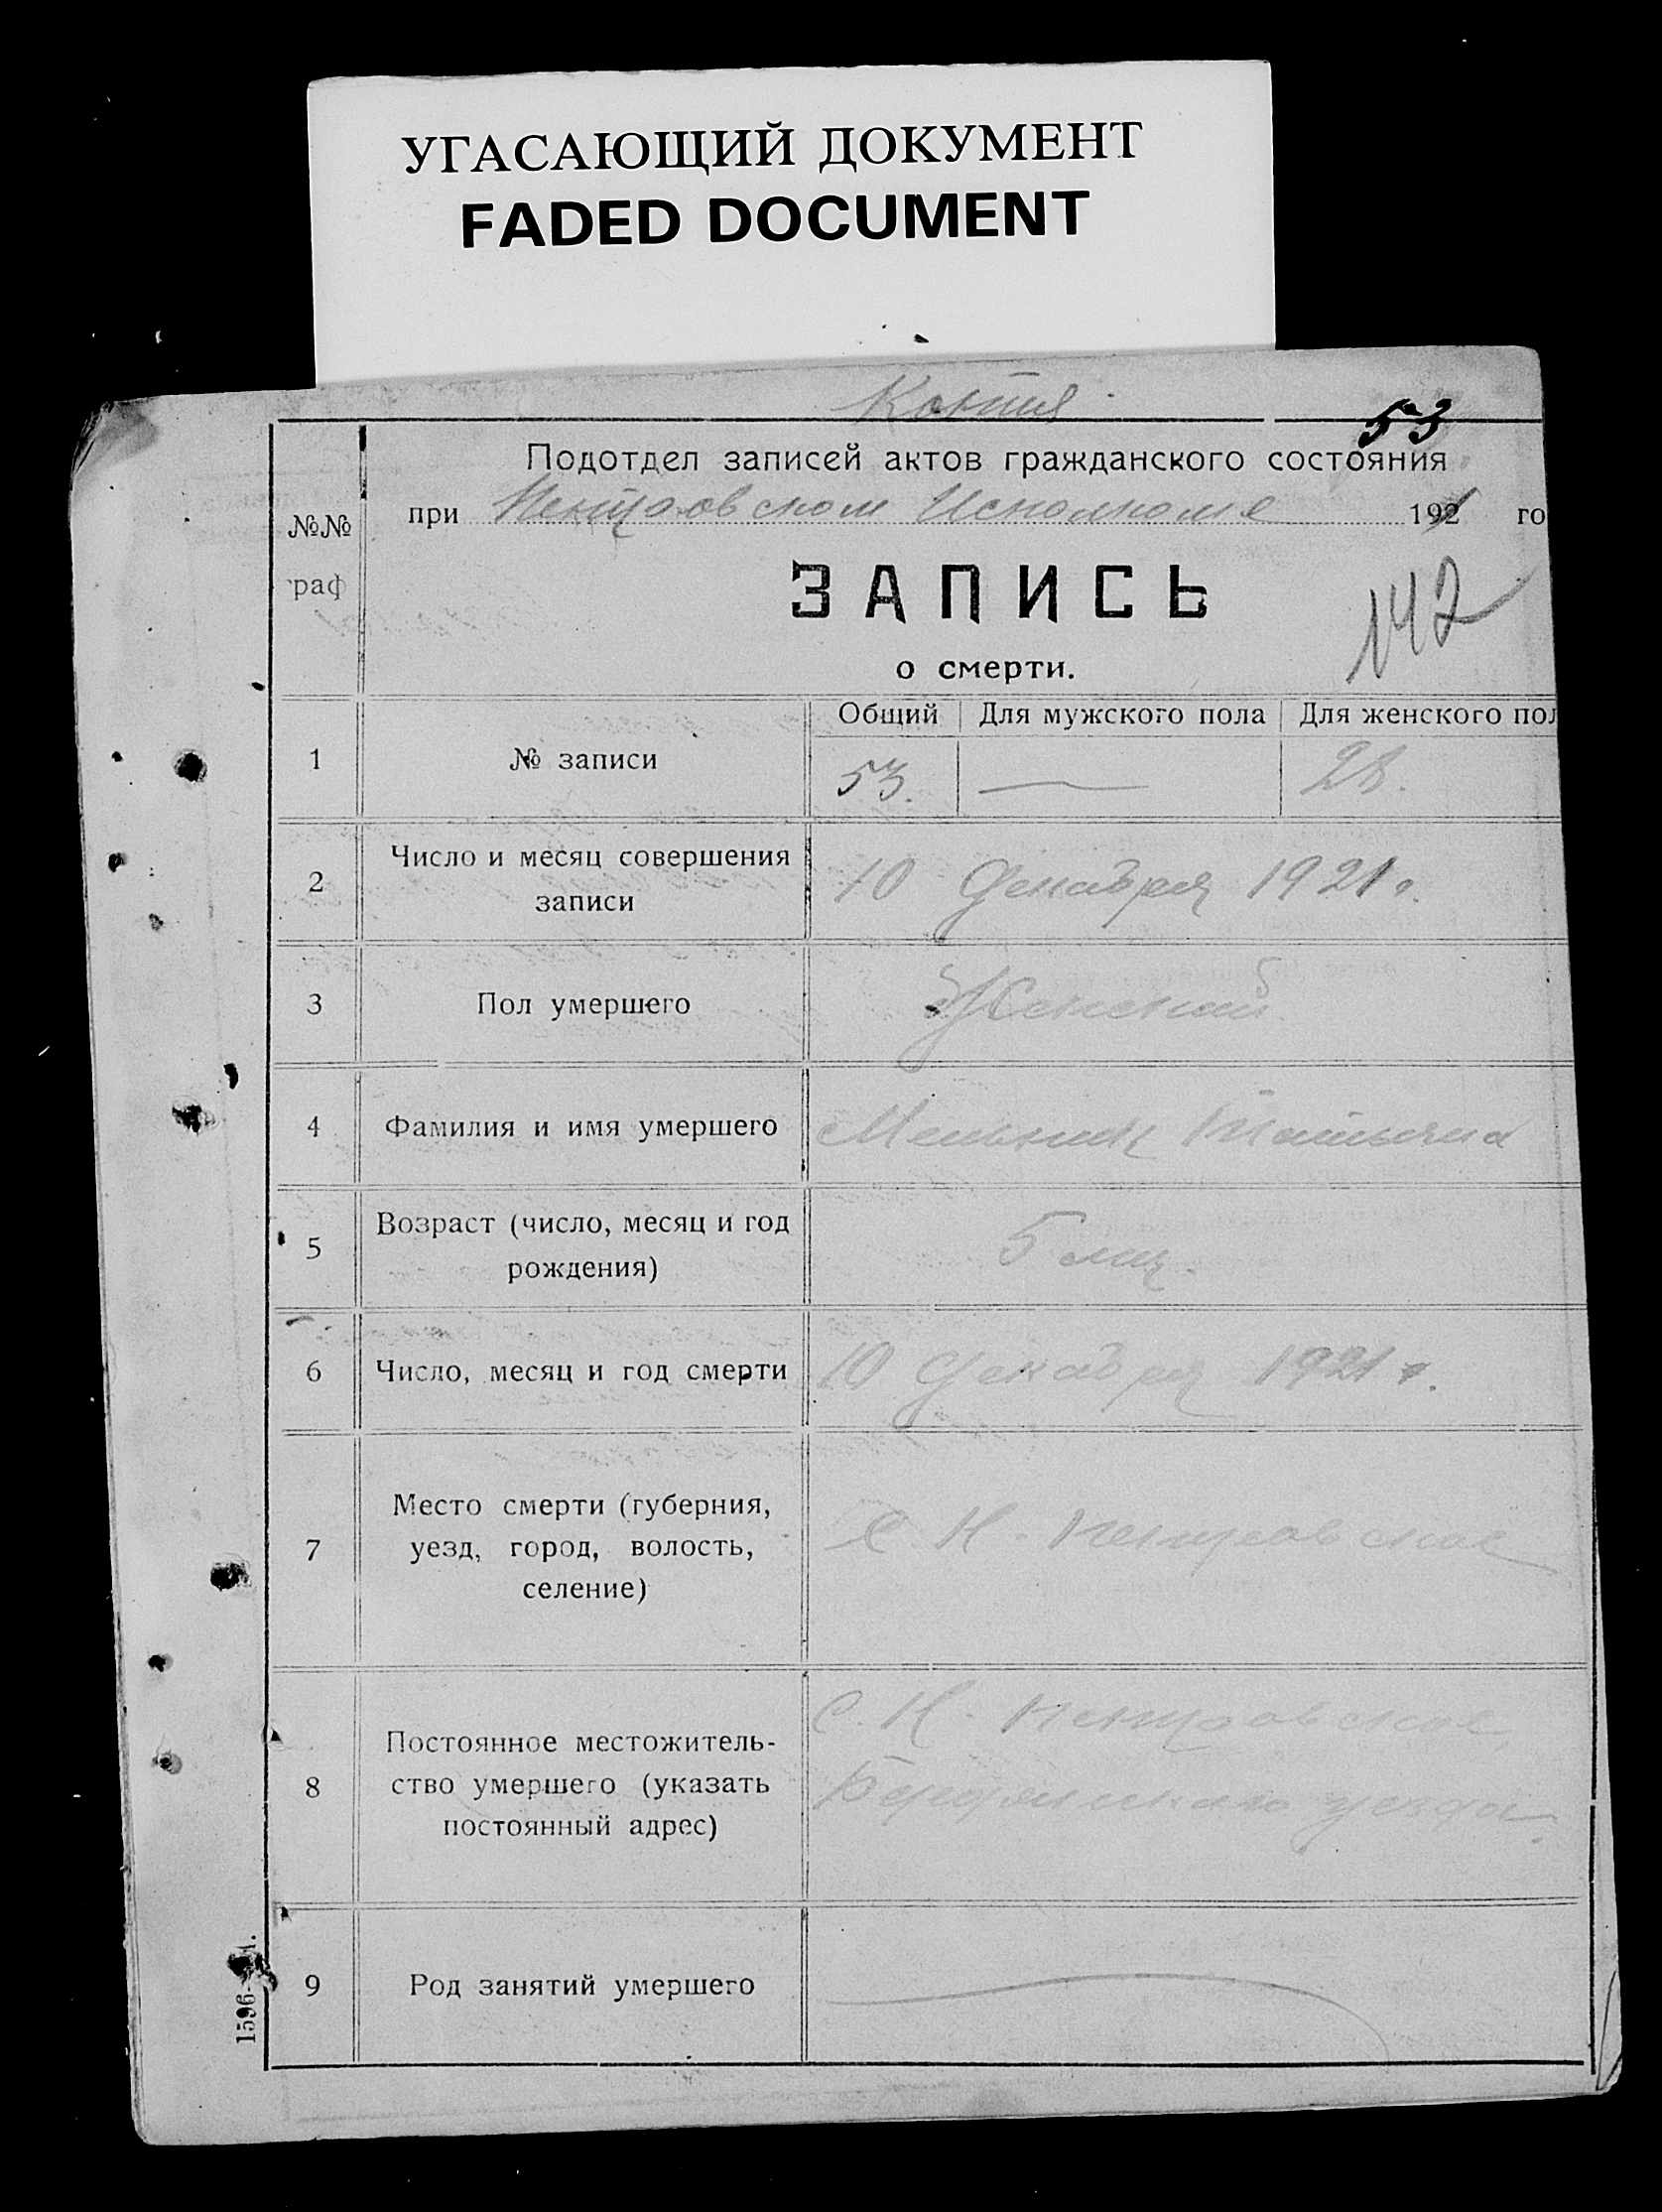 УГАСАЮЩИЙ ДОКУМЕНТ
FADED DOCUMENT
Копия
53
Подотдел записей актов гражданского состояния
при Петровском Исполкоме 1921 го
№№
граф
ЗАПИСЬ
142
о смерти.
Общий Для мужского пола Для женского пол
1 № записи 53. — 28.
2 Число и месяц совершения
записи
10 Декабря 1921 г.
3 Пол умершего Женский
4 Фамилия и имя умершего Мельник Татьяна
5 Возраст (число, месяц и год
рождения)
5 мц.
6 Число, месяц и год смерти 10 Декабря 1921 г.
7 Место смерти (губерния,
уезд, город, волость,
селение)
с. Н. Петровское
8 Постоянное местожитель-
ство умершего (указать
постоянный адрес)
С. Н. Петровское
Бердянского уезда.
9 Род занятий умершего
1596